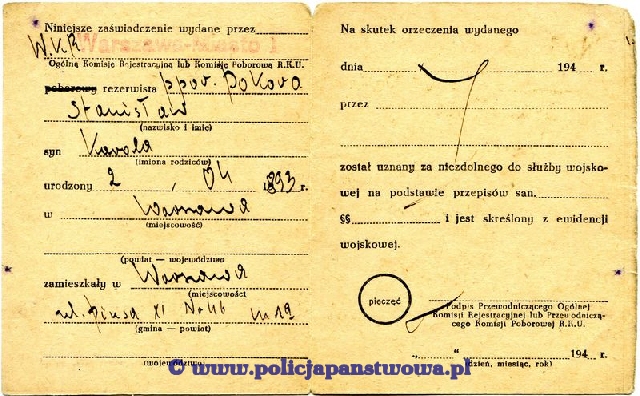 Niniejsze zaświadczenie wydane przez
W.K.R Warszawa-Miasto 1
Ogólną Komisję Rejestracyjną lub Komisję Poborową R.K.U.
poborowy rezerwista ppor. Pokora
Stanisław
(nazwisko i imię)
syn Karola
(imiona rodziców)
urodzony 2 . 04 1893 r.
w Warszawa
(miejscowość)
(powiat — województwo)
zamieszkały w Warszawa
(miejscowość)
ul. Piusa XI Nr 46 m 19
(gmina — powiat)
(województwo)
Na skutek orzeczenia wydanego
dnia 194 r.
przez
został uznany za niezdolnego do służby wojsko-
wej na podstawie przepisów san.
§§ i jest skreślony z ewidencji
wojskowej.
pieczęć
Podpis Przewodniczącego Ogólnej
Komisji Rejestracyjnej lub Przewodniczą-
cego Komisji Poborowej R.K.U.
„ 194 r.
(dzień, miesiąc, rok)
© www.policjapanstwowa.pl